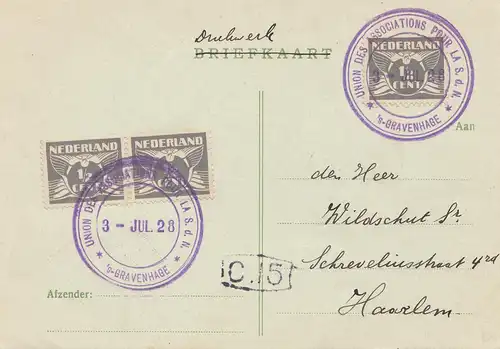 Drukwerk
BRIEFKAART
UNION DES ASSOCIATIONS POUR LA S. d. N.
NEDERLAND
3 - JUL 28
CENT
's-GRAVENHAGE
Aan
NEDERLAND
1/2
CENT
NEDERLAND
UNION DES ASSOCIATIONS LA S. d. N.
3 - JUL. 28
's-GRAVENHAGE
den Heer
Wildschut Sr
Schreveliusstraat 4rd
Haarlem
C.15
Afzender: